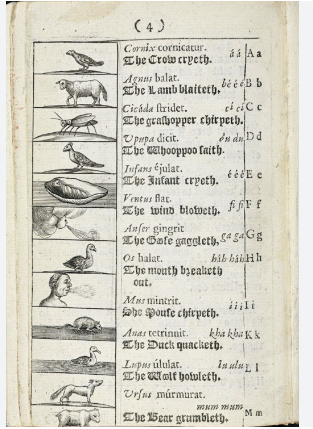 ( 4 )
Cornix cornicatur. á á A a
The Crow cryeth.
Agnus balat. bé é é B b
The Lamb blaiteth.
Cicáda stridet. ci ci C c
The grashopper chirpeth.
Upupa dicit. du du D d
The Whooppoo saith.
Infans éjulat. é é é E e
The Infant cryeth.
Ventus flat. fi fi F f
The wind bloweth.
Anser gingrit ga ga G g
The Goose gaggleth.
Os halat. háh háh H h
The mouth breatheth
out.
Mus mintrit. í í í I i
The Mouse chirpeth.
Anas tetrinnit. kha kha K k
The Duck quacketh.
Lupus úlulat. lu ulu L l
The Wolf howleth.
Ursus múrmurat. mum mum M m
The Bear grumbleth.